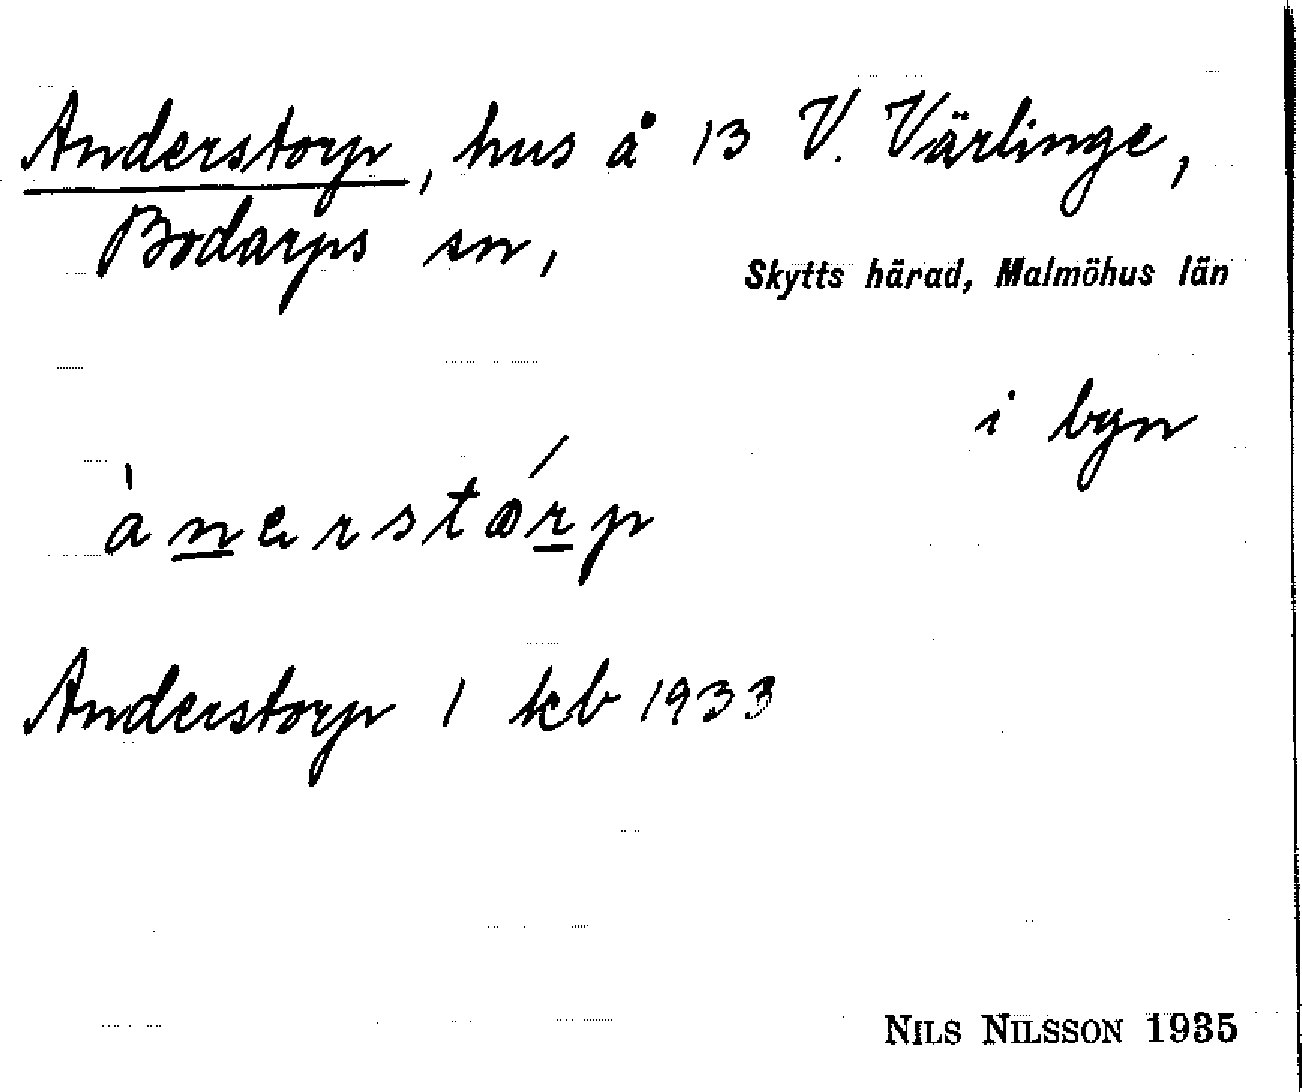 Anderstorp, hus å 13 V. Värlinge,
Bodarps sn,
Skytts härad, Malmöhus län
i byn
ànerstórp
Anderstorp 1 kb 1933
NILS NILSSON 1935